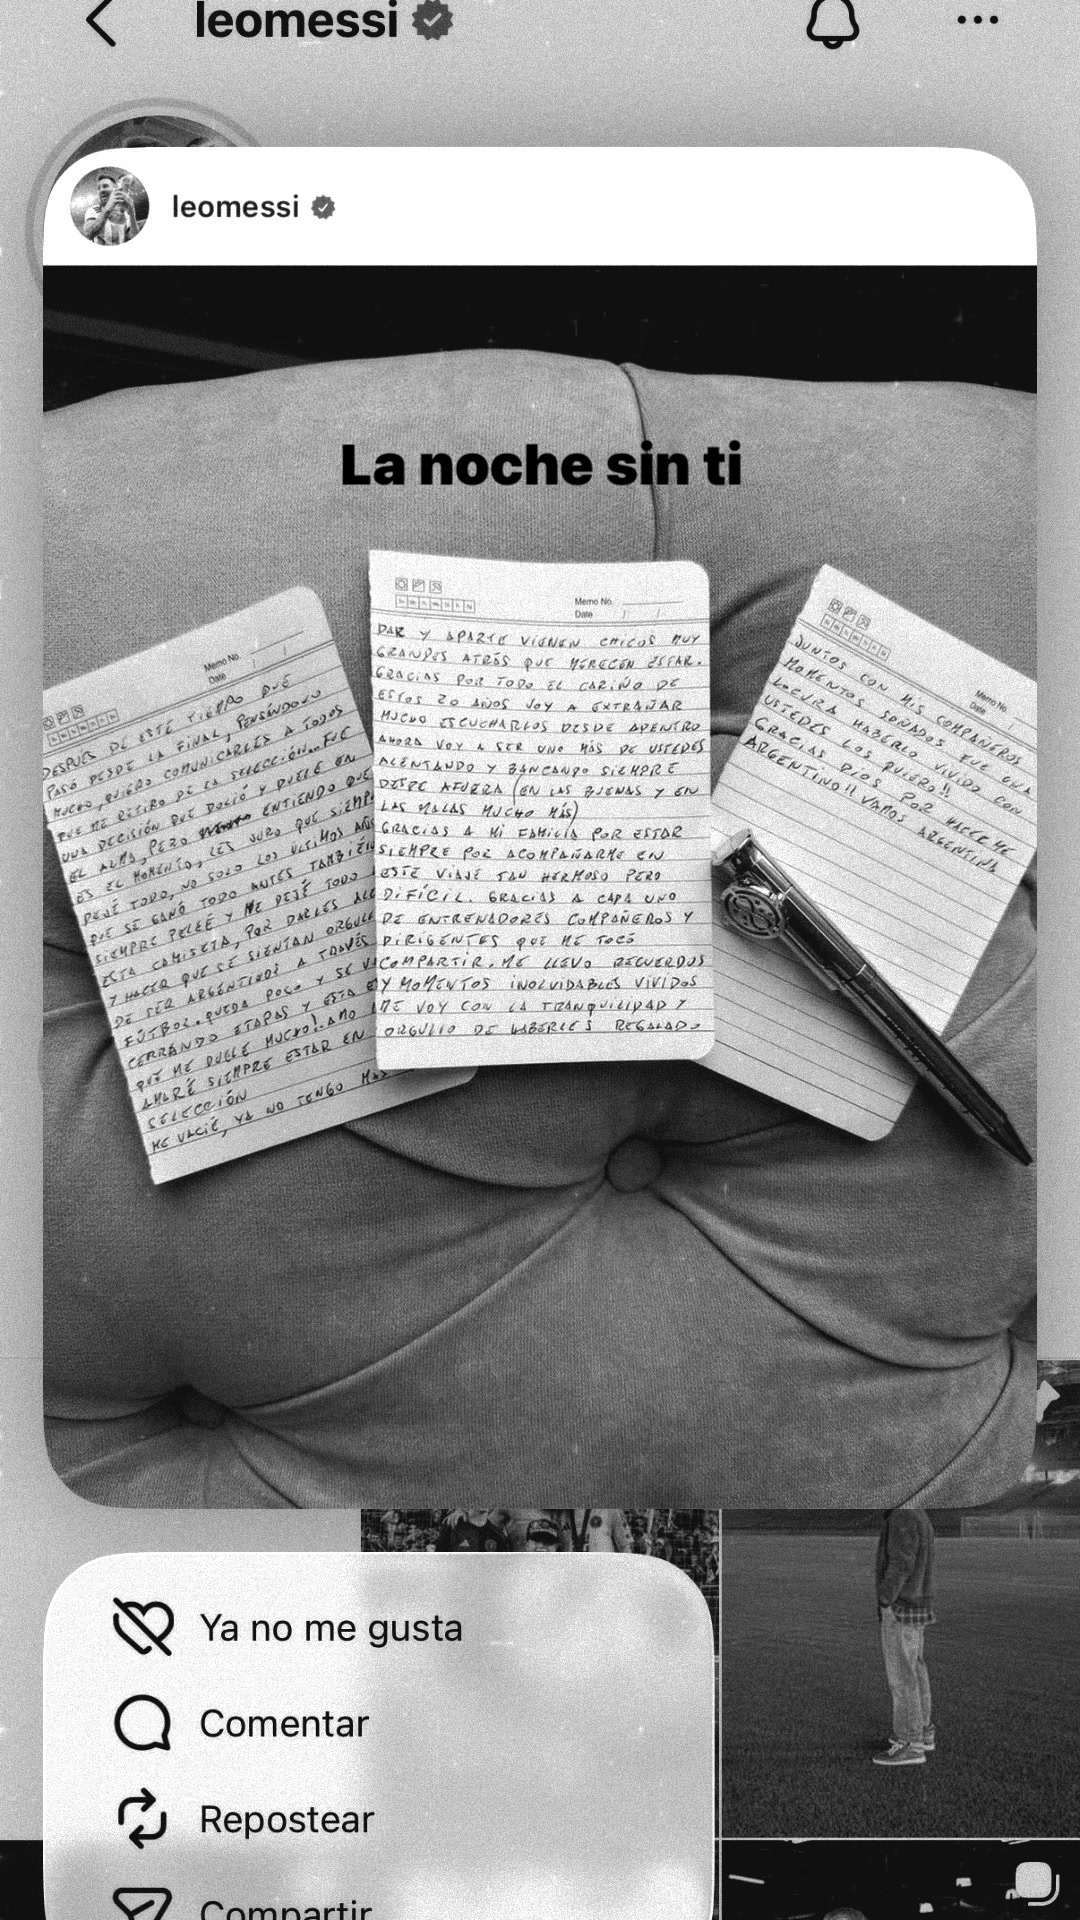 leomessi
leomessi
La noche sin ti
Memo No.
Date
DESPUES DE ESTE TIEMPO QUE
PASÓ DESDE LA FINAL, PENSÁNDOLO
MUCHO, QUIERO COMUNICARLES A TODOS
QUE ME RETIRO DE LA SELECCIÓN... FUE
UNA DECISIÓN QUE DOLIÓ Y DUELE EN
EL ALMA, PERO ENTIENDO QUE
ES EL MOMENTO, LES JURO QUE SIEMP
DEJÉ TODO, NO SOLO LOS ULTIMOS AÑO
QUE SE GANÓ TODO ANTES TAMBIÉN
SIEMPRE PELEÉ Y ME DEJÉ TODO
ESTA CAMISETA, POR DARLES ALE
Y HACER QUE SE SIENTAN ORGULL
DE SER ARGENTINOS A TRAVÉS
FÚTBOL. QUEDA POCO Y SE VA
CERRANDO ETAPAS Y ESTA E
QUE ME DUELE MUCHO! AMO
AMARÉ SIEMPRE ESTAR EN
SELECCIÓN
ME VACIÉ, YA NO TENGO MAS
Memo No.
Date
DAR Y APARTE VIENEN CHICOS MUY
GRANDES ATRÁS QUE MERECEN ESTAR.
GRACIAS POR TODO EL CARIÑO DE
ESTOS 20 AÑOS VOY A EXTRAÑAR
MUCHO ESCUCHARLOS DESDE ADENTRO
AHORA VOY A SER UNO MÁS DE USTEDES
ALENTANDO Y BANCANDO SIEMPRE
DESDE AFUERA (EN LAS BUENAS Y EN
LAS MALAS MUCHO MÁS)
GRACIAS A MI FAMILIA POR ESTAR
SIEMPRE POR ACOMPAÑARME EN
ESTE VIAJE TAN HERMOSO PERO
DIFÍCIL. GRACIAS A CADA UNO
DE ENTRENADORES COMPAÑEROS Y
DIRIGENTES QUE ME TOCÓ
COMPARTIR. ME LLEVO RECUERDOS
Y MOMENTOS INOLVIDABLES VIVIDOS
ME VOY CON LA TRANQUILIDAD Y
ORGULLO DE HABERLES REGALADO
Memo No.
Date
JUNTOS CON MIS COMPAÑEROS
MOMENTOS SOÑADOS FUE UNA
LOCURA HABERLO VIVIDO CON
USTEDES LOS QUIERO!!
GRACIAS DIOS POR HACERME
ARGENTINO!! VAMOS ARGENTINA
Ya no me gusta
Comentar
Repostear
Compartir